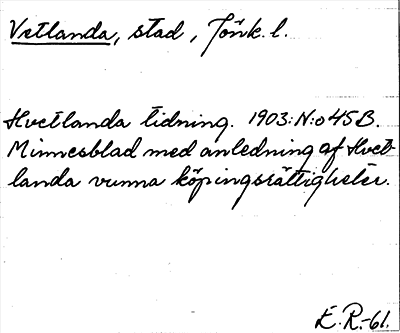 Vetlanda, stad, Jönk. l.
Hvetlanda tidning. 1903: N:o 45 B.
Minnesblad med anledning af Hvet-
landa vunna köpingsrättigheter.
E. R. -61.